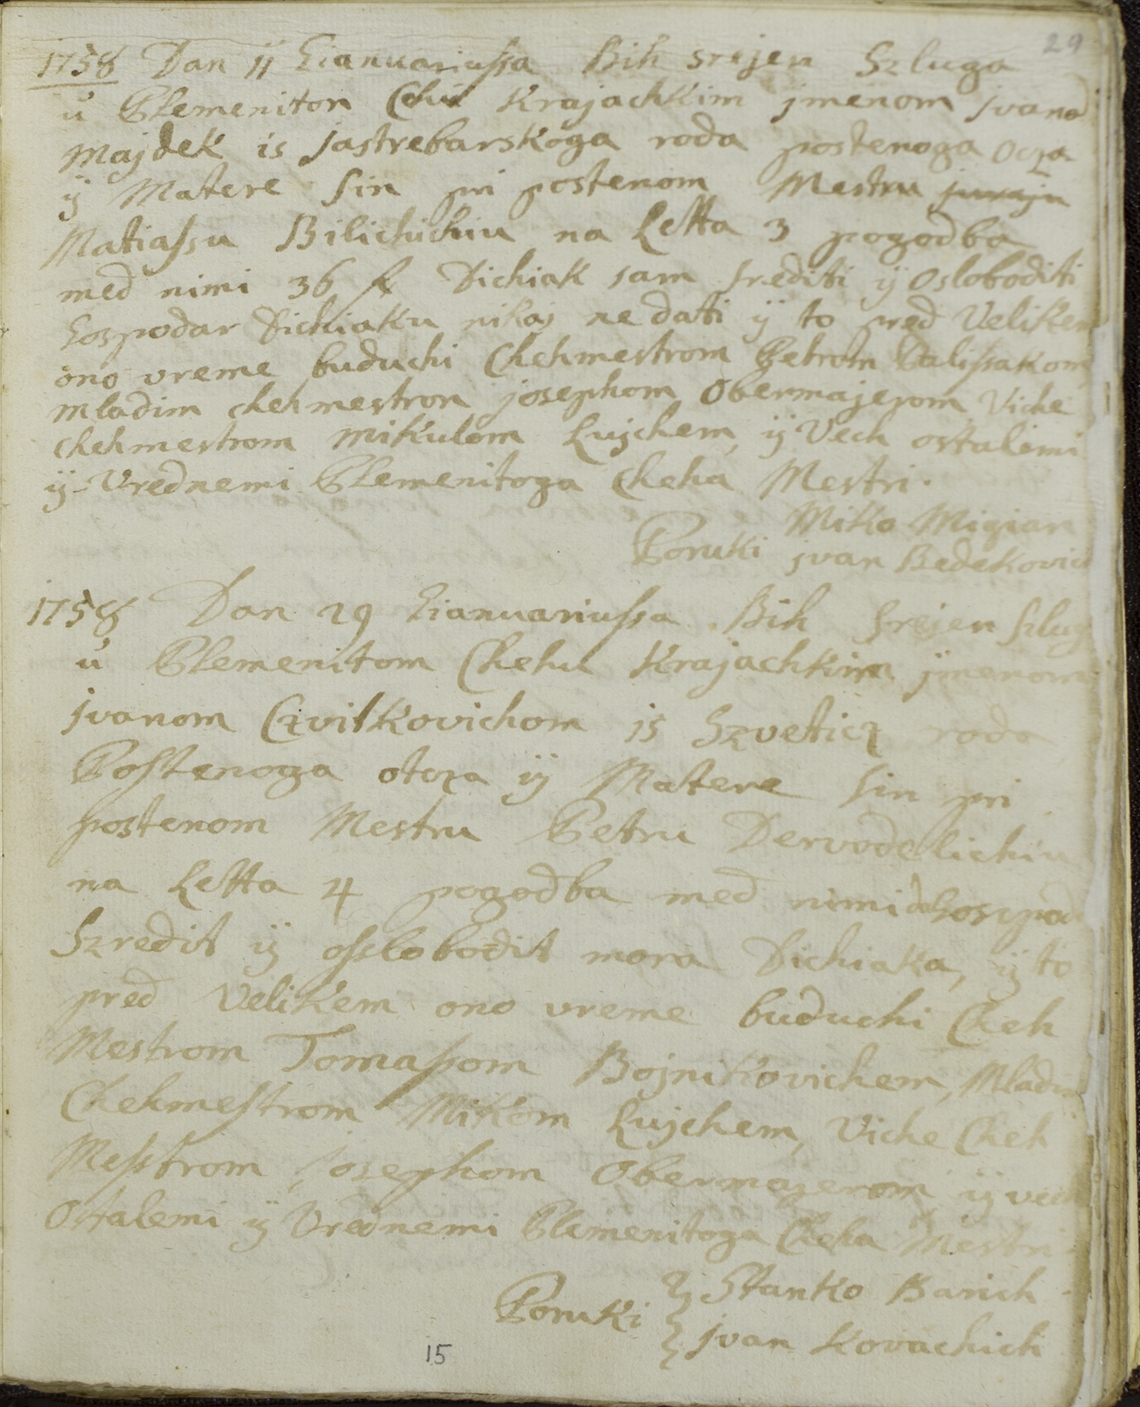 29
1758 Dan 11 Gianuariussa Bih srejen Szluga
u Plemenitom Chehu Krajachkim jmenom jvano
Majdek is jastrebarskoga roda postenoga Ocza
ÿ Matere Sin pri postenom Mestru juraju
Matiassu Bilichichiu na Letta 3 pogodba
med nimi 36 f Dichiak sam srediti ÿ Osloboditi
Gospodar Dichiaku nikaj ne dati ÿ to pred Velikem
ono vreme buduchi Chehmestrom Petrom Palissakom
mladim chehmestron josephom Obermajerom Viche
chehmestrom Mikulom Lujchem, ÿ Vech ostalimi
ÿ Vrednemi Plemenitoga Cheha Mestri.
Miko Migian
Poruki jvan Bedekovich
1758 Dan 29 Gianuariussa Bih srejen szlug
u Plemenitom Chehu Krajachkim jmenom
jvanom Czvitkovichom is Szveticz roda
Postenoga otcza ÿ Matere sin pri
postenom Mestru Petru Dervodelichiu
na Letta 4 pogodba med nimi da Goszpod
Szredit ÿ osslobodit mora Dichiaka, ÿ to
pred Velikem ono vreme buduchi Cheh
Mestrom Tomassom Bojnikovichem, Mladim
Chehmestrom Mikom Lujchem, Viche Cheh
Messtrom josephom Obermajerom ÿ vech
Ostalemi ÿ Vrednemi Plemenitoga Cheha Mestri
Stanko Barich
Poruki
jvan Kovachich
15